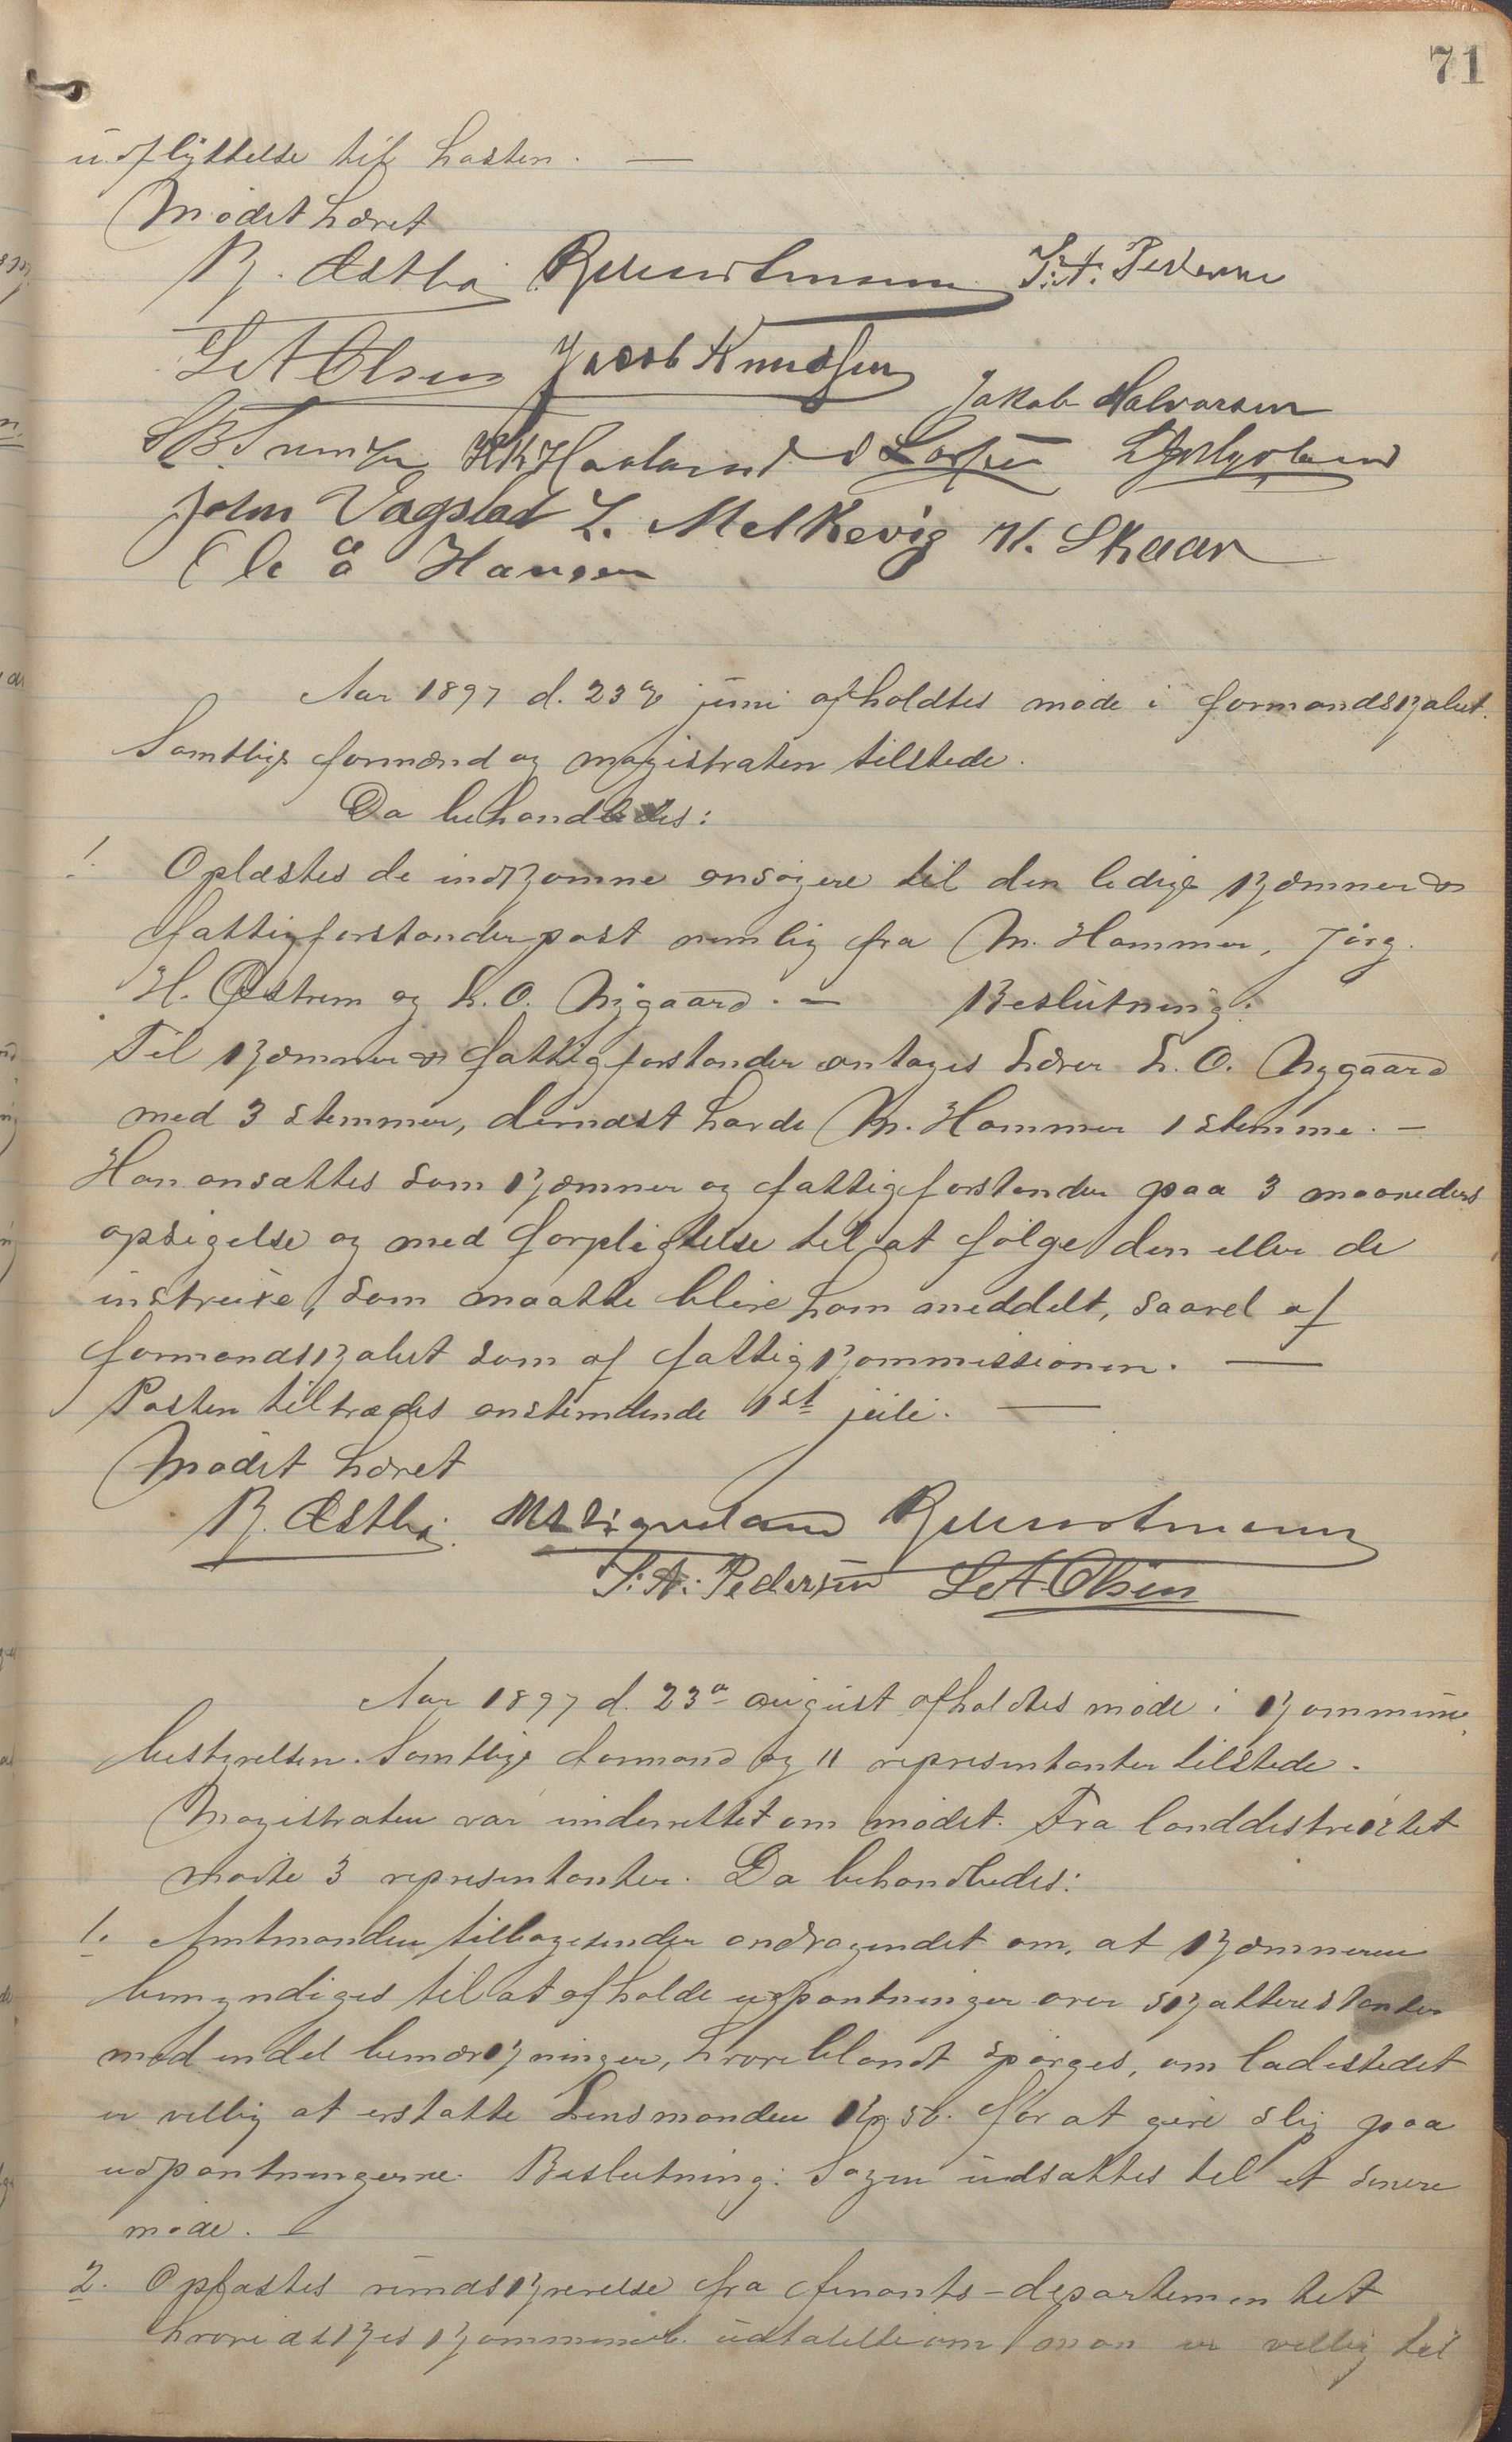 71
udflyttelse til høsten. —
Mødet hævet
K. Østbø. T. A. Pedersen
L A Olsen Jacob Knudsen
Jakob Halvorsen
H. Haaland
John Vagstad L. Melkevig H. Skaar
Ole O Hansen
Aar 1897 d. 23de juni afholdtes møde i formandskabet.
Samtlige formænd og magistraten tilstede.
Da behandledes:
1. Oplæstes de indkomne ansøgere til den ledige kjæmner &
fattigforstanderpost nemlig fra M. Hammer, Jørg.
H. Østrem og L. O. Nygaard. — Beslutning:
Til kjæmner & fattigforstander antages Lærer L. O. Nygaard
med 3 stemmer, dernæst havde M. Hammer 1 stemme. —
Han ansættes som kjæmner og fattigforstander paa 3 maaneders
opsigelse og med forpligtelse til at følge den eller de
instruxe, som maatte blive ham meddelt, saavel af
formandskabet som af fattigkommissionen. —
Posten tiltrædes anstundende 1st juli. —
Mødet hævet
K. Østbø.
T. A. Pedersen L A Olsen
Aar 1897 d. 23de august afholdtes møde i kommune-
bestyrelsen. Samtlige formænd og 11 representanter tilstede.
Magistraten var underrettet om mødet. Fra landdistriktet
mødte 3 representanter. Da behandledes:
1. Amtmanden tilbagesender andragendet om, at kjæmneren
bemyndiges til at afholde udpantninger over skatterestanter
med endel bemærkninger, hvoriblandt spørges, om ladestedet
er villig at erstatte Lensmanden for at give slip paa
udpantningerne. Beslutning: Sagen udsættes til et senere
møde. —
2. Oplæstes rundskrivelse fra finants-departementet
hvori æskes kommuneb. udtalelse om man er villig til